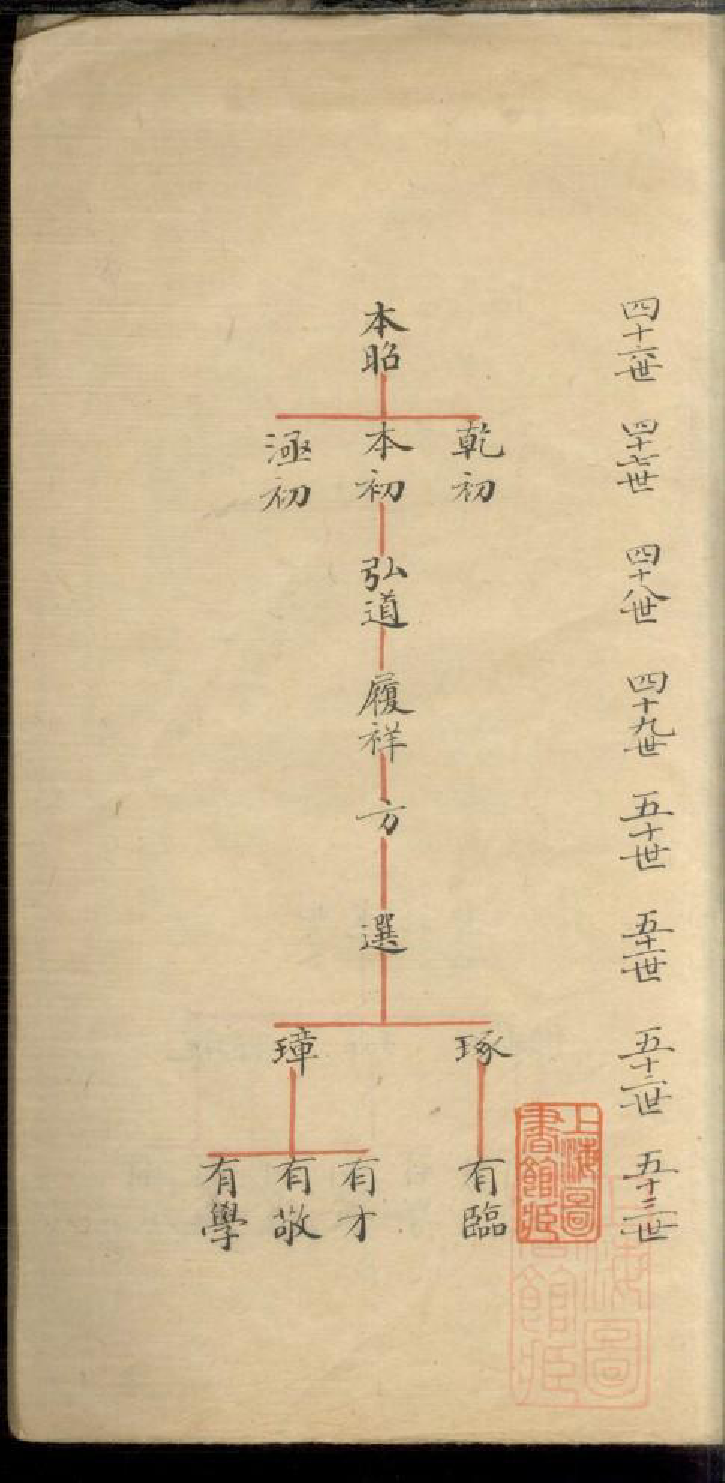 四十六世 四十七世 四十八世 四十九世 五十世 五十一世 五十二世 五十三世
上海圖
書館藏
本昭
乾初
本初
極初
弘道
履祥
方
選
琢
璋
有臨
有才
有敬
有學
上海圖
書館藏